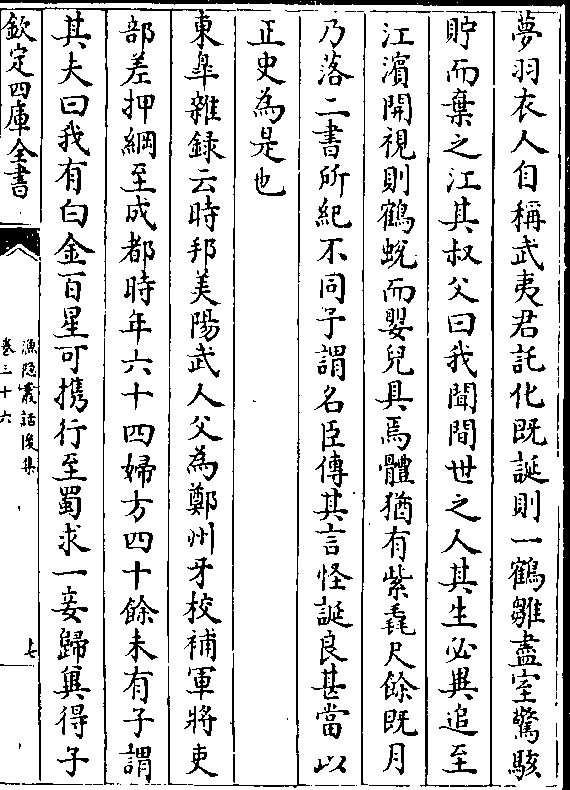 夢羽衣人自稱武夷君託化既誕則一鶴雛盡室驚駭
貯而棄之江其叔父曰我聞間世之人其生必異追至
江濵開視則鶴蛻而嬰兒具焉體猶有紫毳尺餘既月
乃落二書所紀不同予謂名臣傳其言怪誕良甚當以
正史為是也
東臯雜録云時邦美陽武人父為鄭州牙校補軍將吏
部差押綱至成都時年六十四婦方四十餘未有子謂
其夫曰我有白金百星可携行至蜀求一妾歸冀得子
欽定四庫全書
漁隠叢話後集
卷三十六
七